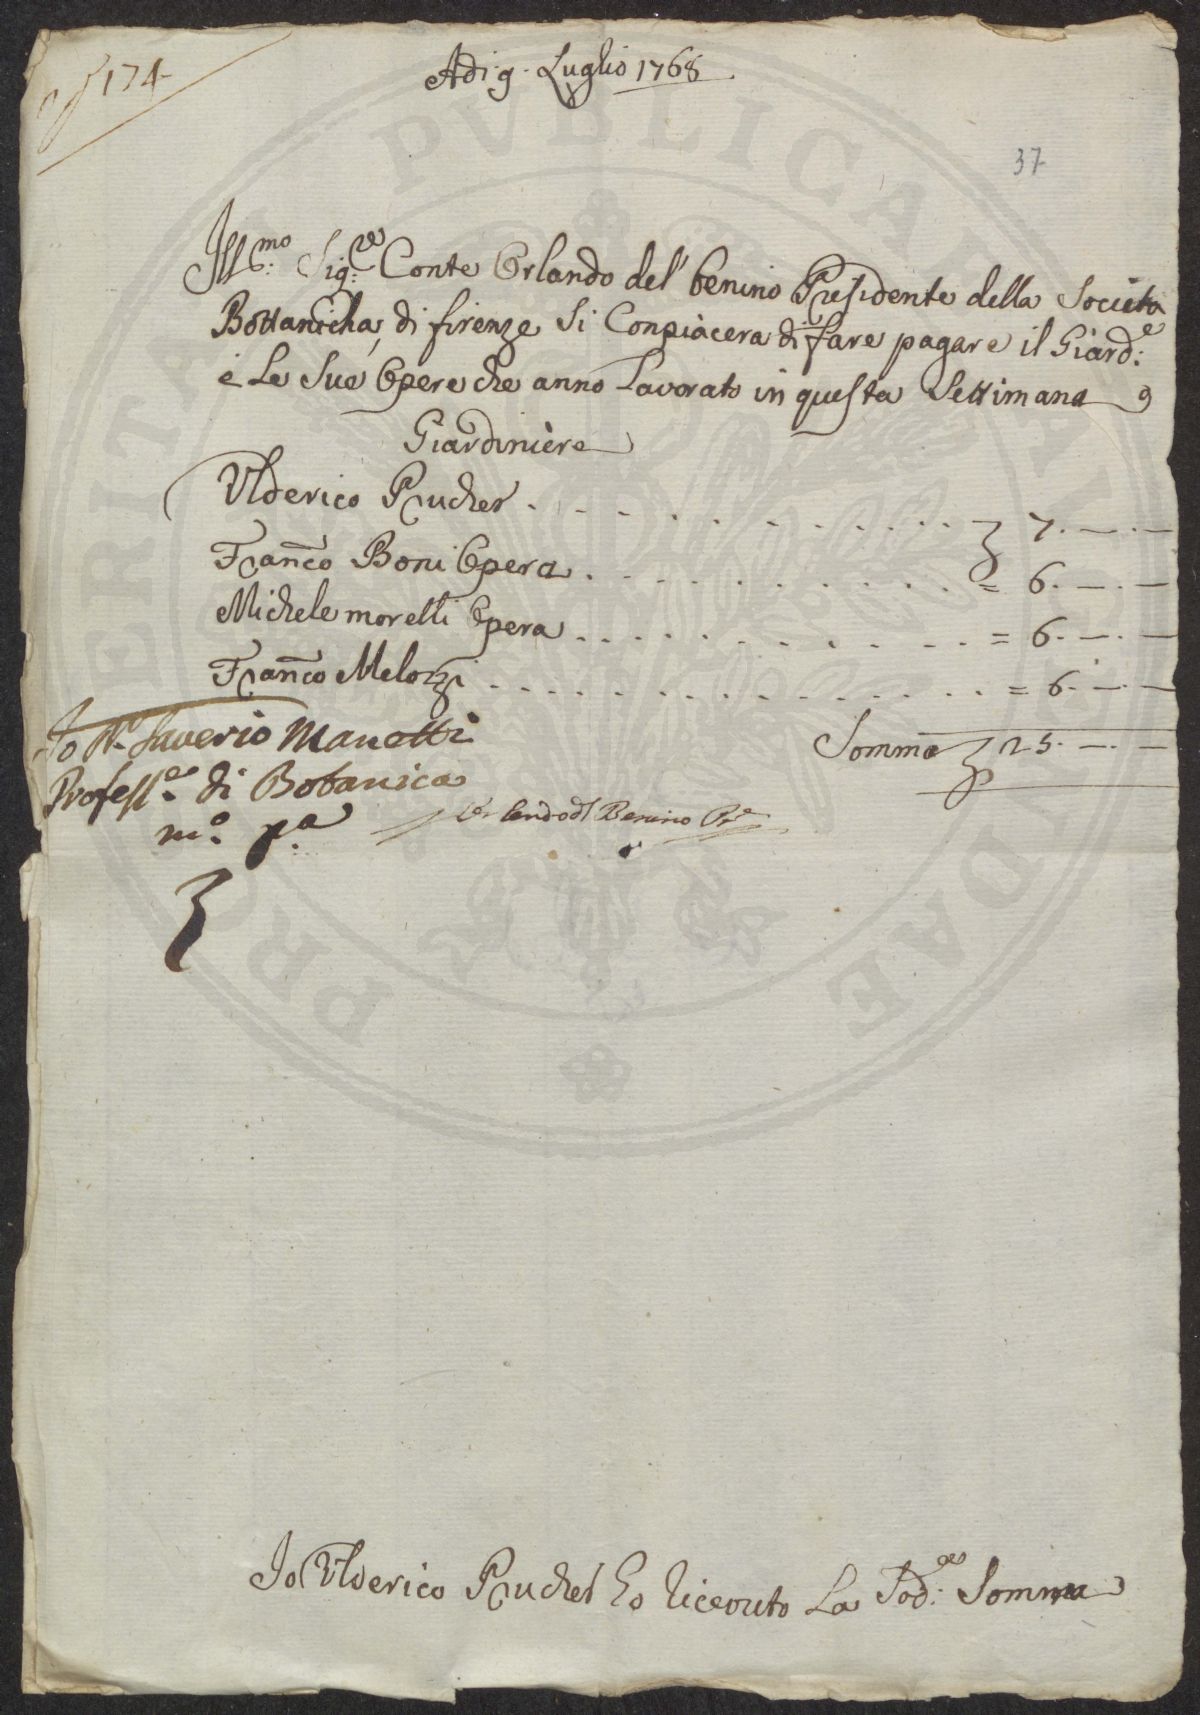 174
Adi 9. Luglio 1768
37
Ill:mo Sig:re Conte Orlando del' benino Presidente della Societa
Bottanicha, di firenze Si Conpiacera di fare pagare il Giard:e
e Le Sue Opere che anno Lavorato in questa Settimana
Giardiniere
Ulderico Prucher . . . . . . . . . . . 7. — . —
Franco Boni Opera . . . . . . . . . . . = 6. — . —
Michele morelli Opera . . . . . . . . . . . = 6. — . —
Franco Melozzi . . . . . . . . . . . . . . = 6. — . —
Io Saverio Manetti
Somma 25. — . —
Profess.e di Botanica
Orlando dl Benino Pre
mo. pa.
Io Ulderico Prucher ho riceouto La Sod:a Somma
PRO PVBLICAE DAE